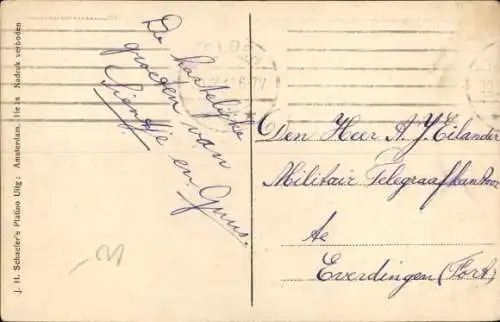 J. H. Schaefer's Platino Uitg: Amsterdam.
Nadruk verboden
De hartelijke
groeten van
Sientje en Guus.
Den Heer A. J. Eilander
Militair Telegraafkantoor
te
Everdingen (Fort)